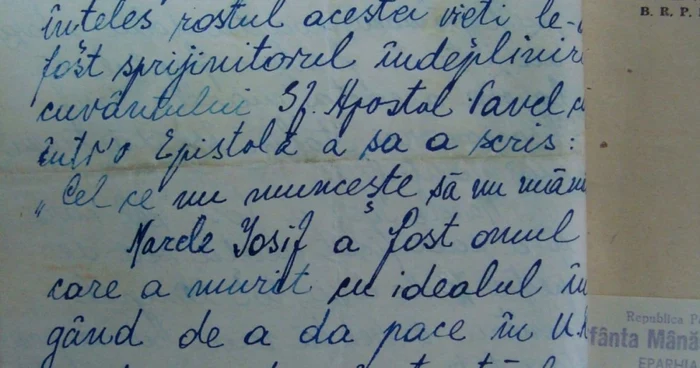 înțeles rostul acestei vieți le-
foșt sprijinitorul îndeplinire
cuvântului Sf. Apostol Pavel c
într'o Epistolă a sa a scris:
„Cel ce nu muncește să nu mân
Marele Iosif a fost omul
care a murit cu idealul în
gând de a da pace în
B. R. P.
Republica P
fânta Mână
EPARHIA